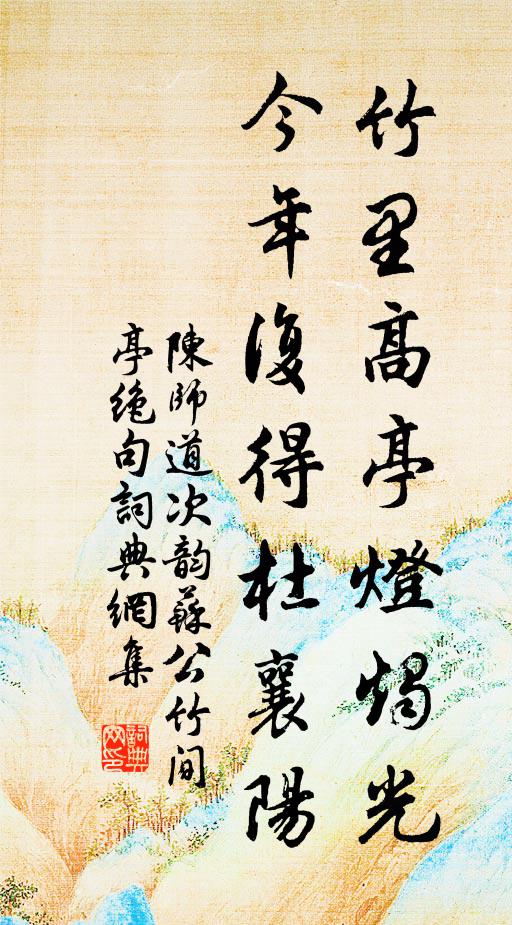 竹里高亭燈燭光
今年復得杜襄陽
陳師道次韵蘇公竹间
亭绝句詞典網集
詞典
网印